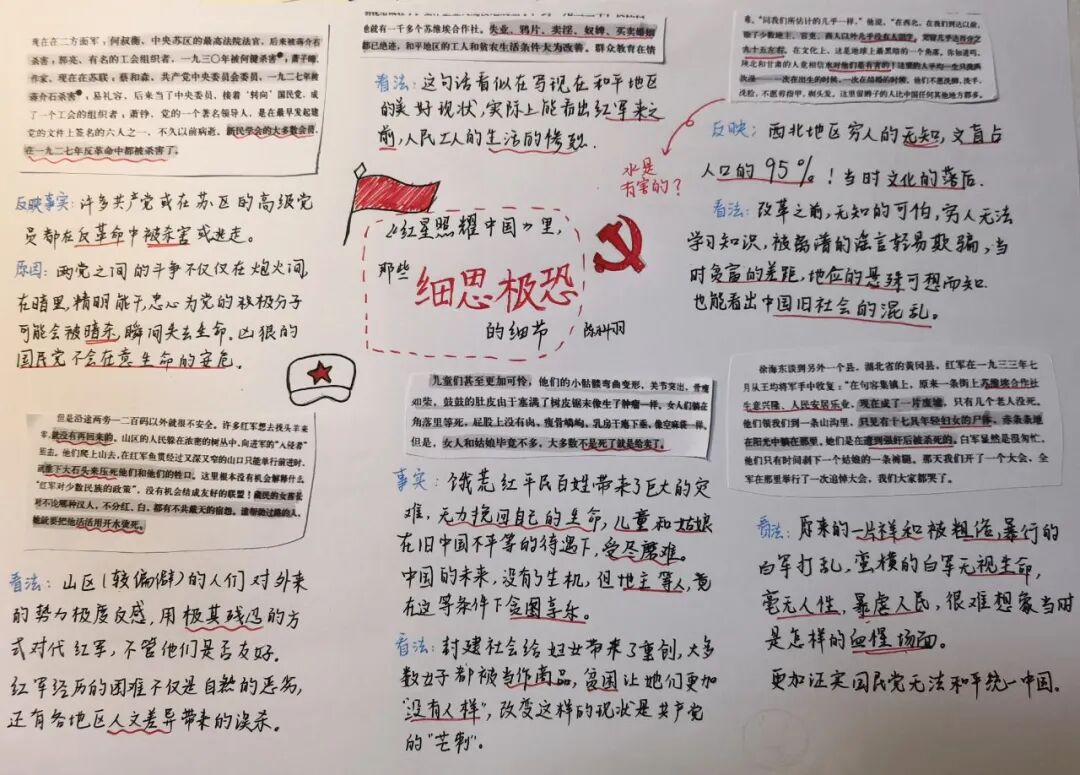 现在在二方面军；何叔衡，中央苏区的最高法院法官，后来被蒋介石
杀害；郭亮，有名的工会组织者，一九三〇年被何键杀害；萧子暲，
作家，现在在苏联；蔡和森，共产党中央委员会委员，一九二七年被
蒋介石杀害；易礼容，后来当了中央委员，接着“转向”国民党，成
了一个工会的组织者；萧铮，党的一个著名领导人，是在最早发起建
党的文件上签名的六人之一，不久以前病逝。新民学会的大多数会员，
在一九二七年反革命中都被杀害了。
反映事实：许多共产党或在苏区的高级党
员都在反革命中被杀害或逃走。
原因：两党之间的斗争不仅仅在炮火间，
在暗里，精明能干，忠心为党的积极分子
可能会被暗杀，瞬间失去生命。凶狠的
国民党不会在意生命的安危。
但是沿途两旁一二百码以外就很不安全。许多红军想去找头羊来
宰，就没有再回来的。山区的人民躲在浓密的树丛中，向进军的“入侵者”
狙击。他们爬上山去，在红军鱼贯经过又深又窄的山口只能单行前进时，
就推下大石头来压死他们和他们的牲口。这里根本没有机会解释什么
“红军对少数民族的政策”，没有机会结成友好的联盟！藏民的女酋长
对不论哪种汉人，不分红、白，都有不共戴天的宿怨。谁帮助过路的人，
她就要把他活活用开水烫死。
看法：山区（较偏僻）的人们对外来
的势力极度反感，用极其残忍的方
式对代红军，不管他们是否友好。
红军经历的困难不仅是自然的恶劣，
还有各地区人文差异带来的误杀。
他就有一千多个苏维埃合作社。失业、鸦片、卖淫、奴婢、买卖婚姻
都已绝迹，和平地区的工人和贫农生活条件大为改善。群众教育在情
看法：这句话看似在写现在和平地区
的美好现状，实际上能看出红军来之
前，人民工人的生活的惨烈．
《红星照耀中国》里，
那些
细思极恐
的细节
儿童们甚至更加可怜，他们的小骷髅弯曲变形，关节突出，骨瘦
如柴，鼓鼓的肚皮由于塞满了树皮锯末像生了肿瘤一样。女人们躺在
角落里等死，屁股上没有肉，瘦骨嶙峋，乳房干瘪下垂，像空麻袋一样。
但是，女人和姑娘毕竟不多，大多数不是死了就是给卖了。
事实：饿荒红平民百姓带来了巨大的灾
难，无力挽回自己的生命，儿童和姑娘
在旧中国不平等的待遇下，受尽磨难。
中国的未来，没有了生机，但地主等人，竟
在这等条件下贪图享乐。
看法：封建社会给妇女带来了重创，大多
数女子都被当作商品，贫困让她们更加
“没有人样”，改变这样的现状是共产党
的“芒刺”。
难。“同我们所估计的几乎一样，”他说，“在西北，在我们到达以前，
除了少数地主、官吏、商人以外几乎没有人识字。文盲几乎达百分之
九十五左右。在文化上，这是地球上最黑暗的一个角落。你知道吗，
陕北和甘肃的人竟相信水对他们是有害的！这里的人平均一生只洗两
次澡——一次在出生的时候，一次在结婚的时候。他们不愿洗脚、洗手、
洗脸，不愿剪指甲、剃头发。这里留辫子的人比中国任何其他地方都多。
水是
有害的？
反映：西北地区穷人的无知，文盲占
人口的95%！当时文化的落后．
看法：改革之前，无知的可怕，穷人无法
学习知识，被离谱的谣言轻易欺骗，当
时贫富的差距，地位的悬殊可想而知．
也能看出中国旧社会的混乱。
徐海东谈到另外一个县，湖北省的黄冈县，红军在一九三三年七
月从王均将军手中收复：“在句容集镇上，原来一条街上苏维埃合作社
生意兴隆，人民安居乐业，现在成了一片废墟，只有几个老人没死。
他们领我们到一条山沟里，只见有十七具年轻妇女的尸体，赤条条地
在阳光中躺在那里，她们是在遭到强奸后被杀死的。白军显然是很匆忙，
他们只有时间剥下一个姑娘的一条裤腿。那天我们开了一个大会，全
军在那里举行了一次追悼大会，我们大家都哭了。
看法：原来的一片祥和被粗俗、暴行的
白军打乱，蛮横的白军无视生命，
毫无人性，暴虐人民，很难想象当时
是怎样的血腥场面。
更加证实国民党无法和平统一中国．